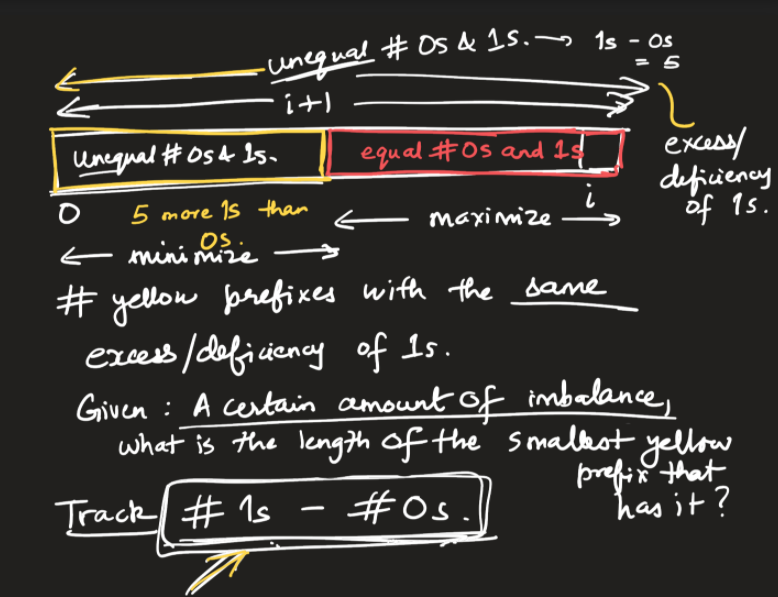 unequal # 0s & 1s. → 1s - 0s
= 5
i+1
unequal # 0s & 1s.
equal # 0s and 1s
excess/
deficiency
of 1s.
0
5 more 1s than
0s.
i
maximize
minimize
# yellow prefixes with the same
excess/deficiency of 1s.
Given : A certain amount of imbalance,
what is the length of the smallest yellow
prefix that
has it?
Track # 1s - # 0s.